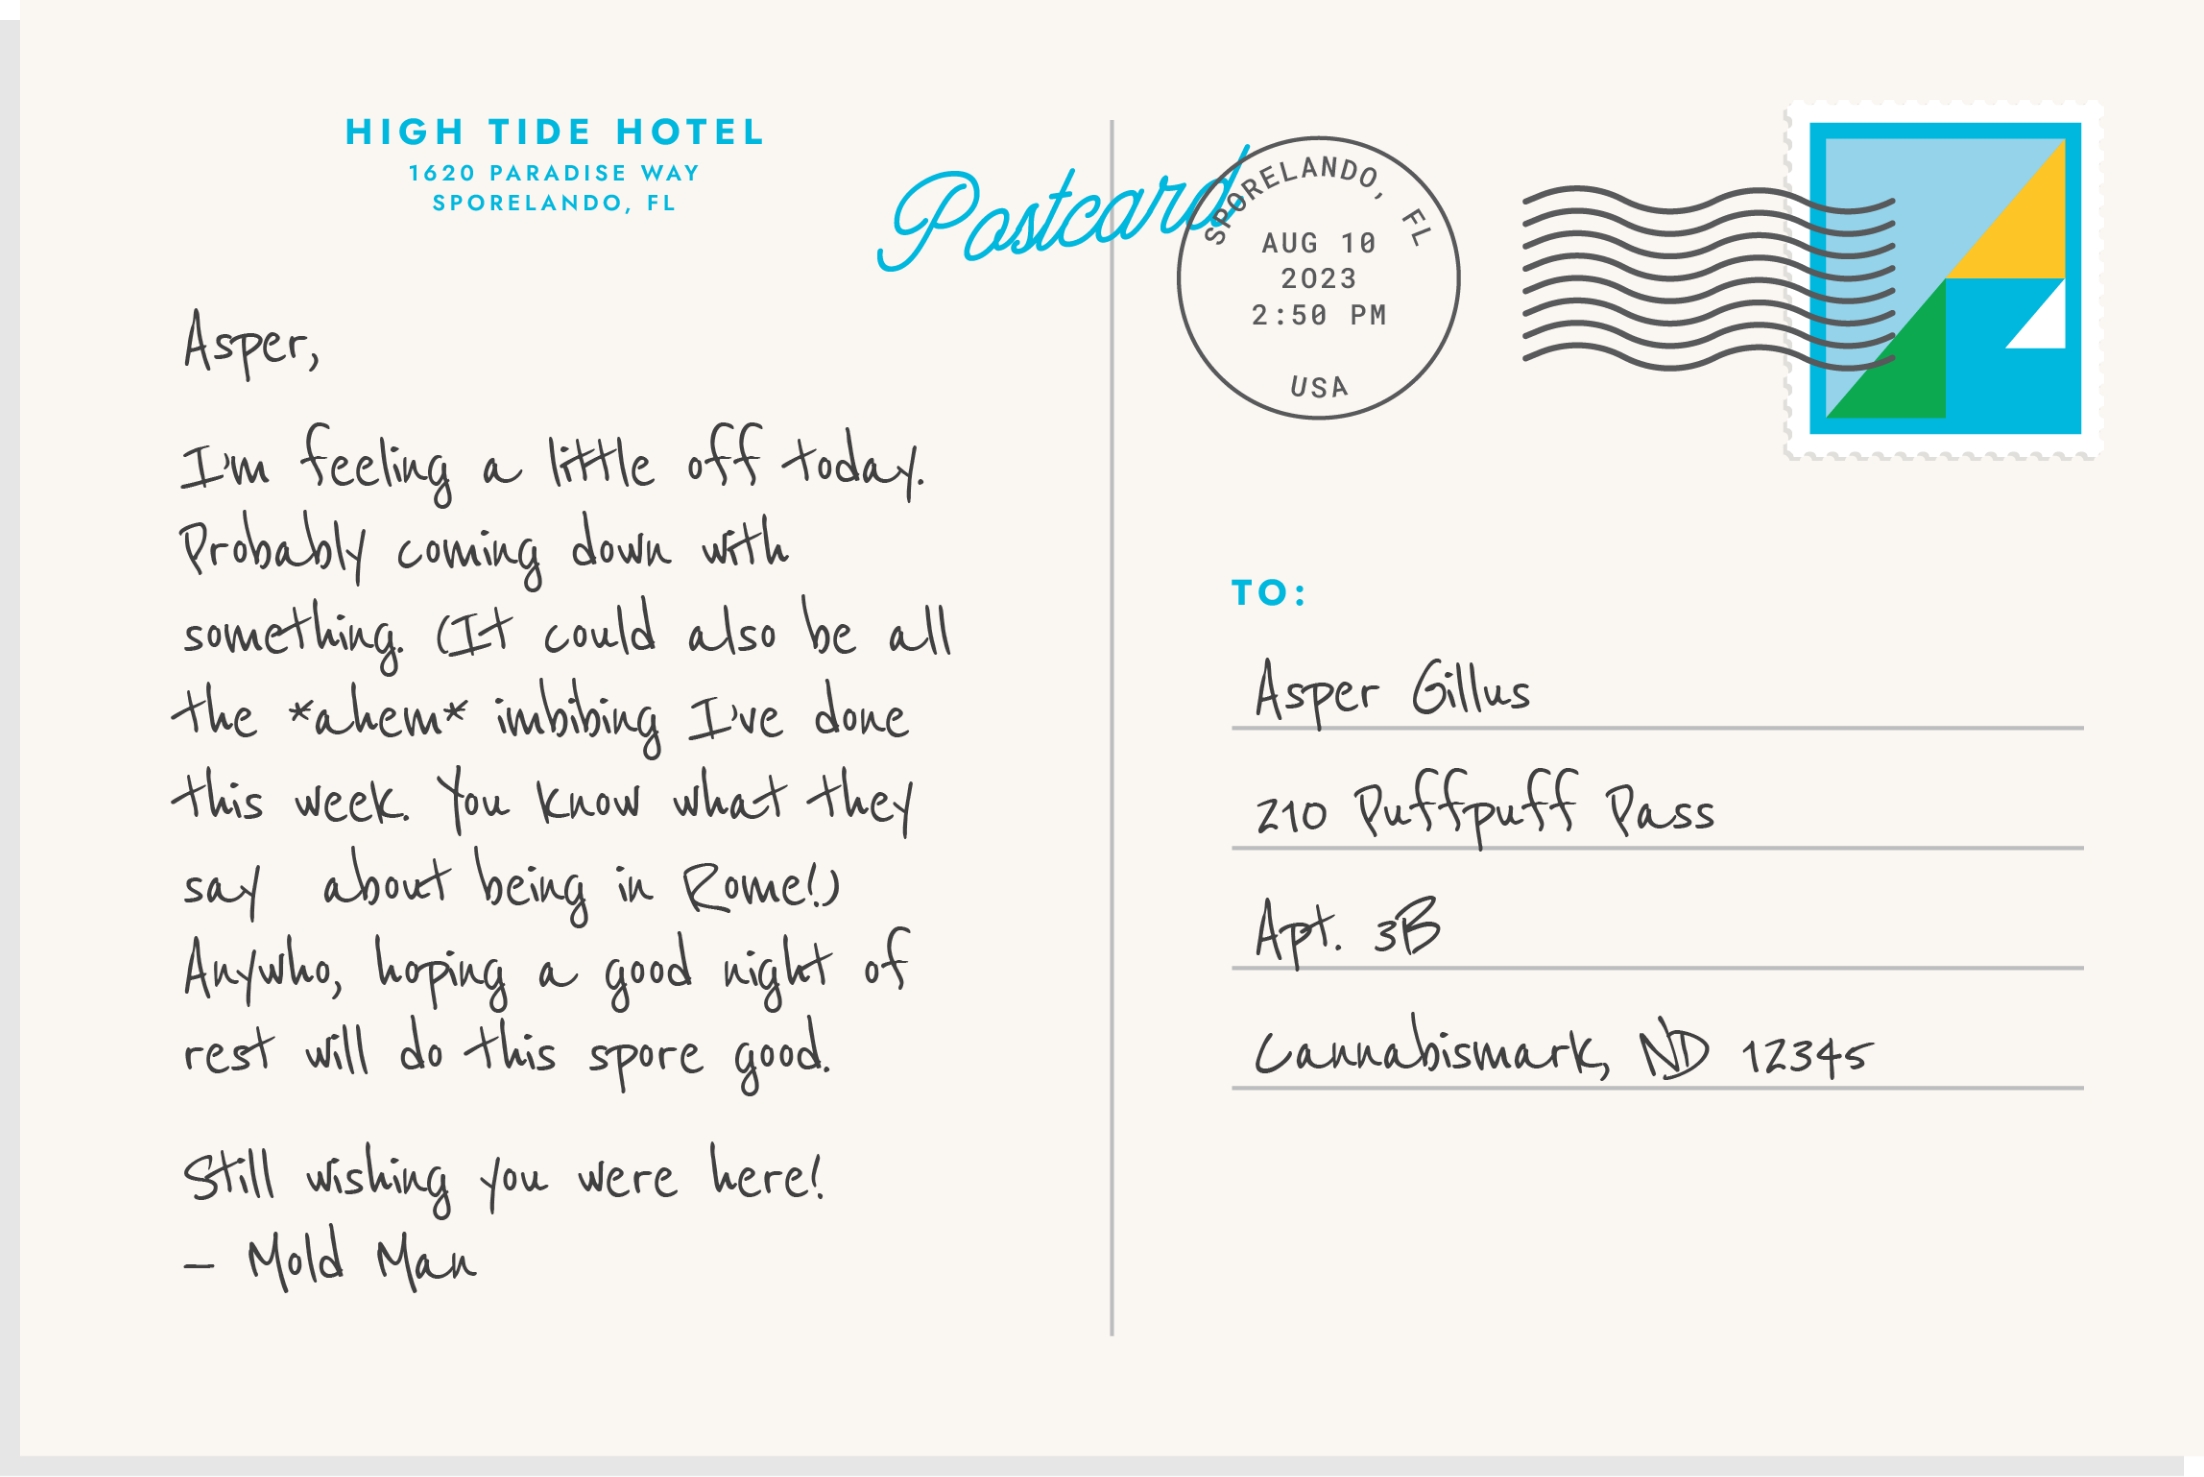 HIGH TIDE HOTEL
1620 PARADISE WAY
SPORELANDO, FL
Postcard
Asper,
I'm feeling a little off today.
Probably coming down with
something. (It could also be all
the *ahem* imbibing I've done
this week. You know what they
say about being in Rome!)
Anywho, hoping a good night of
rest will do this spore good.
Still wishing you were here!
– Mold Man
SPORELANDO, FL
AUG 10
2023
2:50 PM
USA
TO:
Asper Gillus
210 Puffpuff Pass
Apt. 3B
Cannabismark, ND 12345